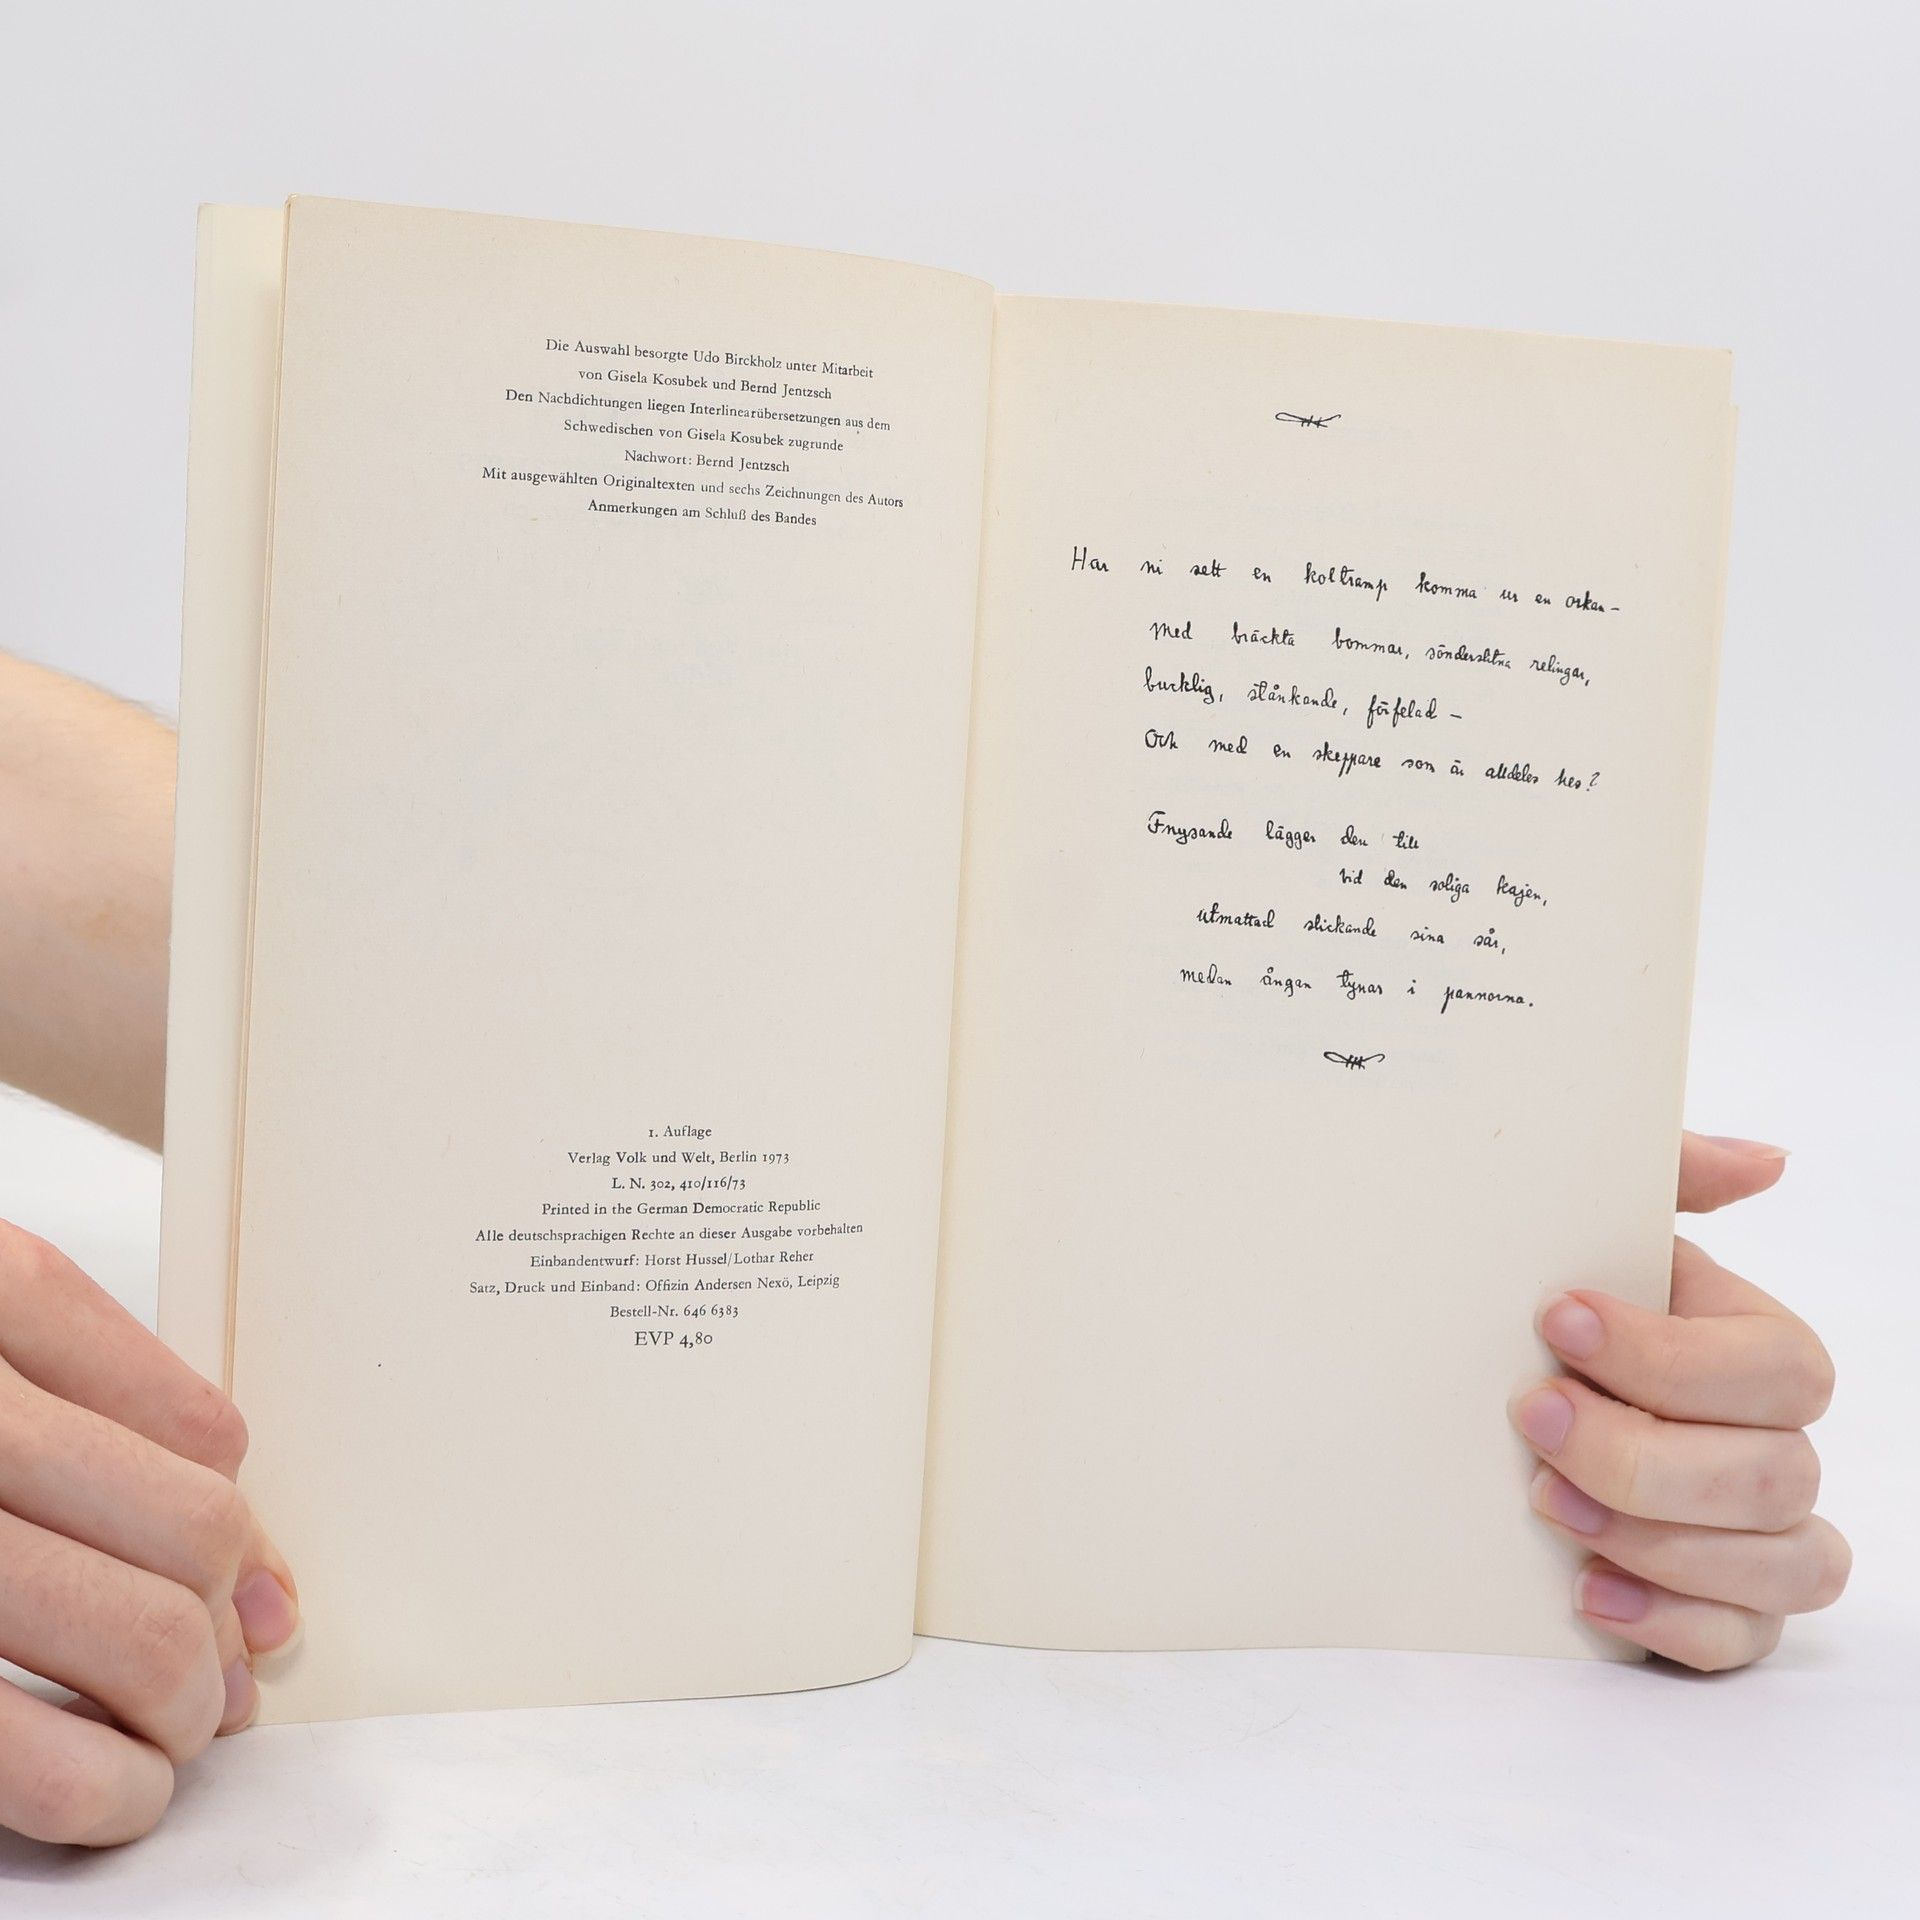 Die Auswahl besorgte Udo Birckholz unter Mitarbeit
von Gisela Kosubek und Bernd Jentzsch
Den Nachdichtungen liegen Interlinearübersetzungen aus dem
Schwedischen von Gisela Kosubek zugrunde
Nachwort: Bernd Jentzsch
Mit ausgewählten Originaltexten und sechs Zeichnungen des Autors
Anmerkungen am Schluß des Bandes
1. Auflage
Verlag Volk und Welt, Berlin 1973
L. N. 302, 410/116/73
Printed in the German Democratic Republic
Alle deutschsprachigen Rechte an dieser Ausgabe vorbehalten
Einbandentwurf: Horst Hussel/Lothar Reher
Satz, Druck und Einband: Offizin Andersen Nexö, Leipzig
Bestell-Nr. 646 6383
EVP 4,80
Har ni sett en koltramp komma ur en orkan –
med bräckta bommar, sönderslitna relingar,
bucklig, stånkande, förfelad –
Och med en skeppare som är alldeles hes?
Fnysande lägger den till
vid den soliga kajen,
utmattad slickande sina sår,
medan ångan tynar i pannorna.